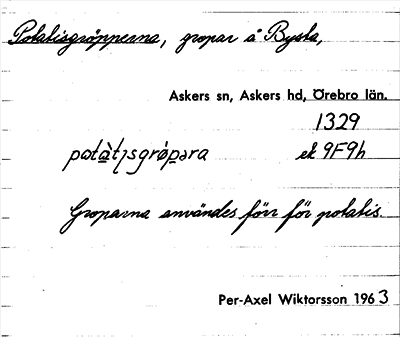 Potatisgröpperna, gropar å Bysta,
Askers sn, Askers hd, Örebro län.
1329
patàtısgrø̀pəra ek 9F9h
Groparna användes förr för potatis.
Per-Axel Wiktorsson 1963